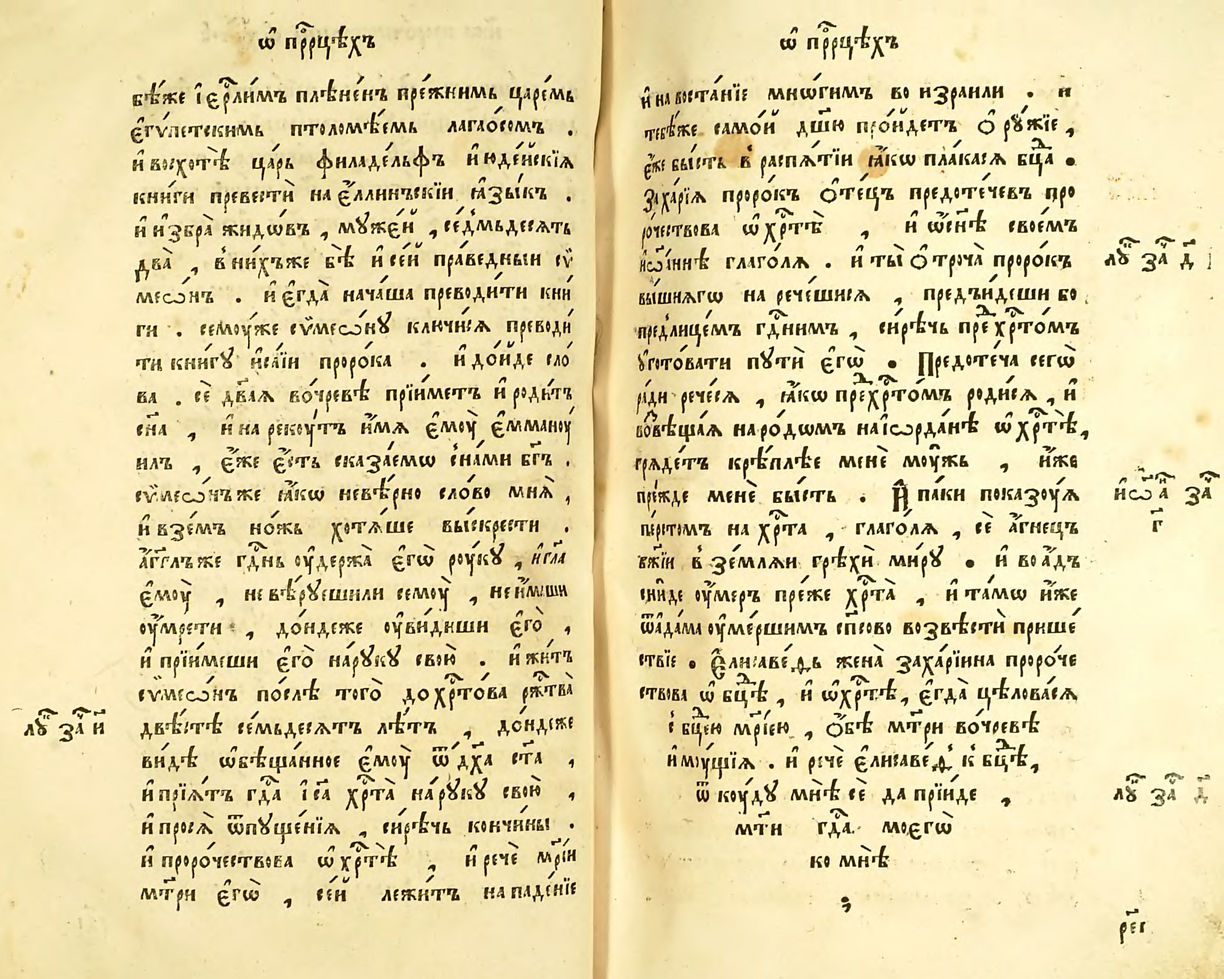 ѡ҆ прⷪ҇рцѣхъ
бѣ́же і҆ерⷭ҇ли́мъ плѣне́нъ пре́жнимь царе́мь
є҆гѵ́петскимь птоломѣ́емь лагаѻ́сомъ .
и҆ восхотѣ̀ ца́рь филаде́льфъ и҆ юде́йскїѧ
кни́ги превестѝ на є҆́ллинъскїи ꙗ҆зы́къ .
и҆ и҆збра̀ жидѡ́въ , мѫже́й , се́дмьдесѧть
два̀ , в ни́хъже бѣ̀ и҆ се́й пра́ведныи сѵ
месѡ́нъ . и҆ є҆гда̀ нача́ша преводи́ти кни
ги . семоу́же сѵмесѡ́нꙋ ключи́сѧ преводи́
ти кни́гꙋ и҆са́їи проро́ка . и҆ до́йде сло́
ва . сѐ дв҃аѧ во́чревѣ прїи́метъ и҆ роди́тъ
сн҃а , и҆ на рекоу́тъ и҆́мѧ є҆моу̀ є҆мманоу
илъ , є҆́же є҆́сть сказа́емѡ с на́ми бг҃ъ .
сѵмесѡ́нъже ꙗ҆́кѡ невѣ́рно сло́во мнѧ̀ ,
и҆ взе́мъ но́жь хотѧ́ше выскрести .
а҆́гг҃лъже гдⷭ҇нь оу҆держа̀ є҆гѡ̀ роу́кꙋ , и҆ гл҃а
є҆моу̀ , не вѣ́рꙋешили семоу̀ , не и҆́маши
оу҆мрети , до́ндеже оу҆ви́диши є҆го̀ ,
и҆ прїи́меши є҆го̀ на́рꙋкꙋ свою̀ . и҆ жи́тъ
сѵмесѡ́нъ по́слѣ того̀ до хрⷭ҇то́ва ржⷭ҇тва̀
двѣ́стѣ се́мьдесѧтъ лѣ́тъ , до́ндеже
ви́дѣ ѡ҆бѣща́нное є҆моу̀ ѿ дх҃а ст҃а ,
и҆ прїѧ́тъ гдⷭ҇а і҆с҃а хрⷭ҇та̀ на́рꙋкꙋ свою̀ ,
и҆ просѧ̀ ѿпꙋще́нїѧ , си́рѣчь кончи́ны .
и҆ проро́чествова ѡ҆ хрⷭ҇тѣ̀ , и҆ речѐ мр҃їи
мт҃ри є҆гѡ̀ , се́й лежи́тъ на паде́нїе
лꙋⷦ҇ заⷱ҇ и҃
ѡ҆ прⷪ҇рцѣхъ
и҆ на воста́нїе мнѡ́гимъ во и҆зра́или . и
тебѣ́же само́й дш҃ю про́йдетъ ѻ҆рꙋ́жїе ,
є҆́же бы́сть в распѧ́тїи ꙗ҆́кѡ пла́касѧ бцⷣа .
Заха́рїѧ проро́къ ѻ҆те́цъ предоте́чевъ про
ро́чествова ѡ҆ хрⷭ҇тѣ̀ , и҆ ѡ҆ сн҃ѣ свое́мъ
и҆ѡ́аннѣ глаго́лѧ . и҆ ты̀ ѻ҆троча̀ проро́къ
вы́шнѧгѡ на рече́шисѧ , пред̾и́деши бо
предлице́мъ гдⷭ҇нимъ , си́рѣчь пре́д хрⷭ҇то́мъ
оу҆гото́вати пꙋти̂ є҆гѡ̀ . Предоте́ча сегѡ̀
ра́ди рече́сѧ , ꙗ҆́кѡ пред хрⷭ҇то́мъ роди́сѧ , и҆
возвѣща́ѧ наро́дѡмъ на і҆ѡрда́нѣ ѡ҆ хрⷭ҇тѣ̀ ,
грѧде́тъ крѣ́плѣе менѐ моу́жь , и҆́же
пре́жде менѐ бы́сть . И҆ па́ки показоу́ѧ
пе́рстомъ на хрⷭ҇та̀ , глаго́лѧ , сѐ а҆́гнецъ
бж҃їи взе́млѧи грѣхѝ ми́рꙋ . и҆ во а҆́дъ
сни́де оу҆́меръ пре́же хрⷭ҇та̀ , и҆ та́мѡ и҆́же
ѿ а҆да́ма оу҆ме́ршимъ сп҃сово возвѣстѝ прише́
ствїе . Є҆лисаве́ѳь жена̀ заха́рїина проро́че
ствова ѡ҆ бцⷣѣ , и҆ ѡ҆ хрⷭ҇тѣ̀ , є҆гда̀ цѣлова́сѧ
с бцⷣею мр҃їею , ѻ҆́бѣ мт҃ри во́чревѣ
и҆моу́щїѧ . и҆ речѐ є҆лисаве́ѳ к бцⷣѣ ,
ѿ коу́дꙋ мнѣ̀ сѐ да прїи́де ,
мт҃и гдⷭ҇а моегѡ̀
ко мнѣ̀
лꙋⷦ҇ заⷱ҇ д҃
и҆ѡⷩ҇а заⷱ҇
г҃
лꙋⷦ҇ заⷱ҇ д҃